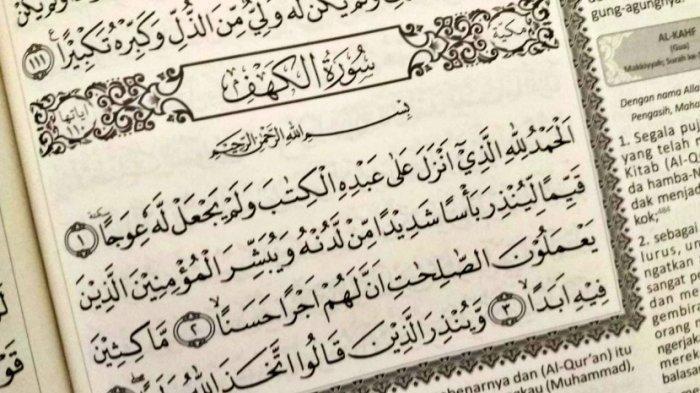 وَلَمْ يَكُنْ لَّهٗ وَلِيٌّ مِّنَ الذُّلِّ وَكَبِّرْهُ تَكْبِيْرًا ࣖ ١١١
مكيّة
سُوْرَةُ الْكَهْفِ
اٰياتها ١١٠
بِسْمِ اللّٰهِ الرَّحْمٰنِ الرَّحِيْمِ
اَلْحَمْدُ لِلّٰهِ الَّذِيْٓ اَنْزَلَ عَلٰى عَبْدِهِ الْكِتٰبَ وَلَمْ يَجْعَلْ لَّهٗ عِوَجًا ۜ ١
قَيِّمًا لِّيُنْذِرَ بَأْسًا شَدِيْدًا مِّنْ لَّدُنْهُ وَيُبَشِّرَ الْمُؤْمِنِيْنَ الَّذِيْنَ
يَعْمَلُوْنَ الصّٰلِحٰتِ اَنَّ لَهُمْ اَجْرًا حَسَنًاۙ ٢ مَّاكِثِيْنَ
فِيْهِ اَبَدًاۙ ٣ وَّيُنْذِرَ الَّذِيْنَ قَالُوا اتَّخَذَ اللّٰهُ
gung-agungnya.
AL-KAHF
(Gua)
Makkiyyah; Surah ke-
Dengan nama Alla
Pengasih, Maha
1. Segala puj
yang telah m
Kitab (Al-Q
da hamba-N
dak menjad
kok;⁴⁸⁴
2. sebagai
lurus, u
ngatkan
sangat p
dan me
gembira
orang
ngerjak
mereka
balasan
benarnya dan (Al-Qur'an) itu
gkau (Muhammad),